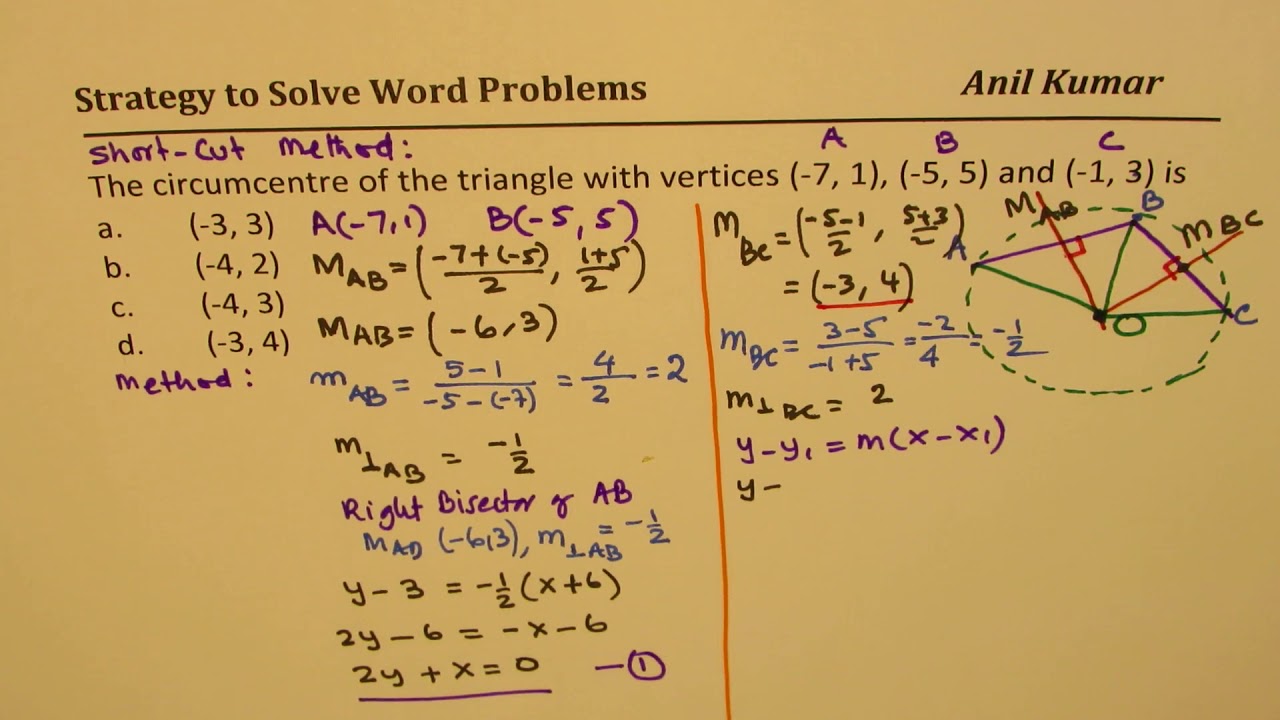 Strategy to Solve Word Problems
Anil Kumar
Short-Cut Method:
A B C
The circumcentre of the triangle with vertices (-7, 1), (-5, 5) and (-1, 3) is
a. (-3, 3)
b. (-4, 2)
c. (-4, 3)
d. (-3, 4)
Method:
A(-7,1) B(-5, 5)
M_AB = (-7+(-5)/2, 1+5/2)
M_AB = (-6,3)
m_AB = 5-1/-5-(-7) = 4/2 = 2
m_⊥AB = -1/2
Right Bisector of AB
M_AD (-6,3), m_⊥AB = -1/2
y-3 = -1/2(x+6)
2y-6 = -x-6
2y+x=0 —①
M_BC = (-5-1/2, 5+3/2)
= (-3, 4)
m_BC = 3-5/-1+5 = -2/4 = -1/2
m_⊥BC = 2
y-y₁ = m(x-x₁)
y-
M_AB
B
M_BC
A
O
C